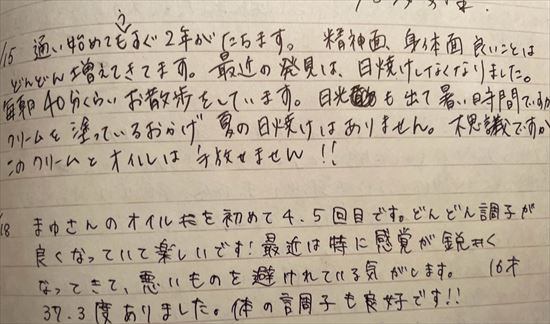 /15 通い始めてもうすぐ2年がたちます。 精神面、身体面 良いことは
どんどん増えてきてます。最近の発見は、日焼けしなくなりました。
毎朝40分くらいお散歩をしています。日光も出て暑い時間ですが
クリームを塗っているおかげ 夏の日焼けはありません。不思議ですが
このクリームとオイルは手放せません!!
/18 まゆさんのオイルを初めて4.5回目です。どんどん調子が
良くなっていて楽しいです!最近は特に感覚が鋭く
なってきて、悪いものを避けれている気がします。
37.3度ありました。体の調子も良好です!!